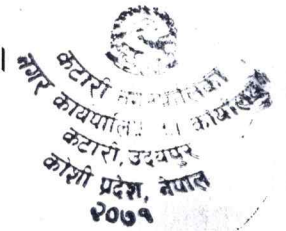 कटारी नगरपालिका
नगर कार्यपालिका को कार्यालय
कटारी, उदयपुर
कोशी प्रदेश, नेपाल
२०७१